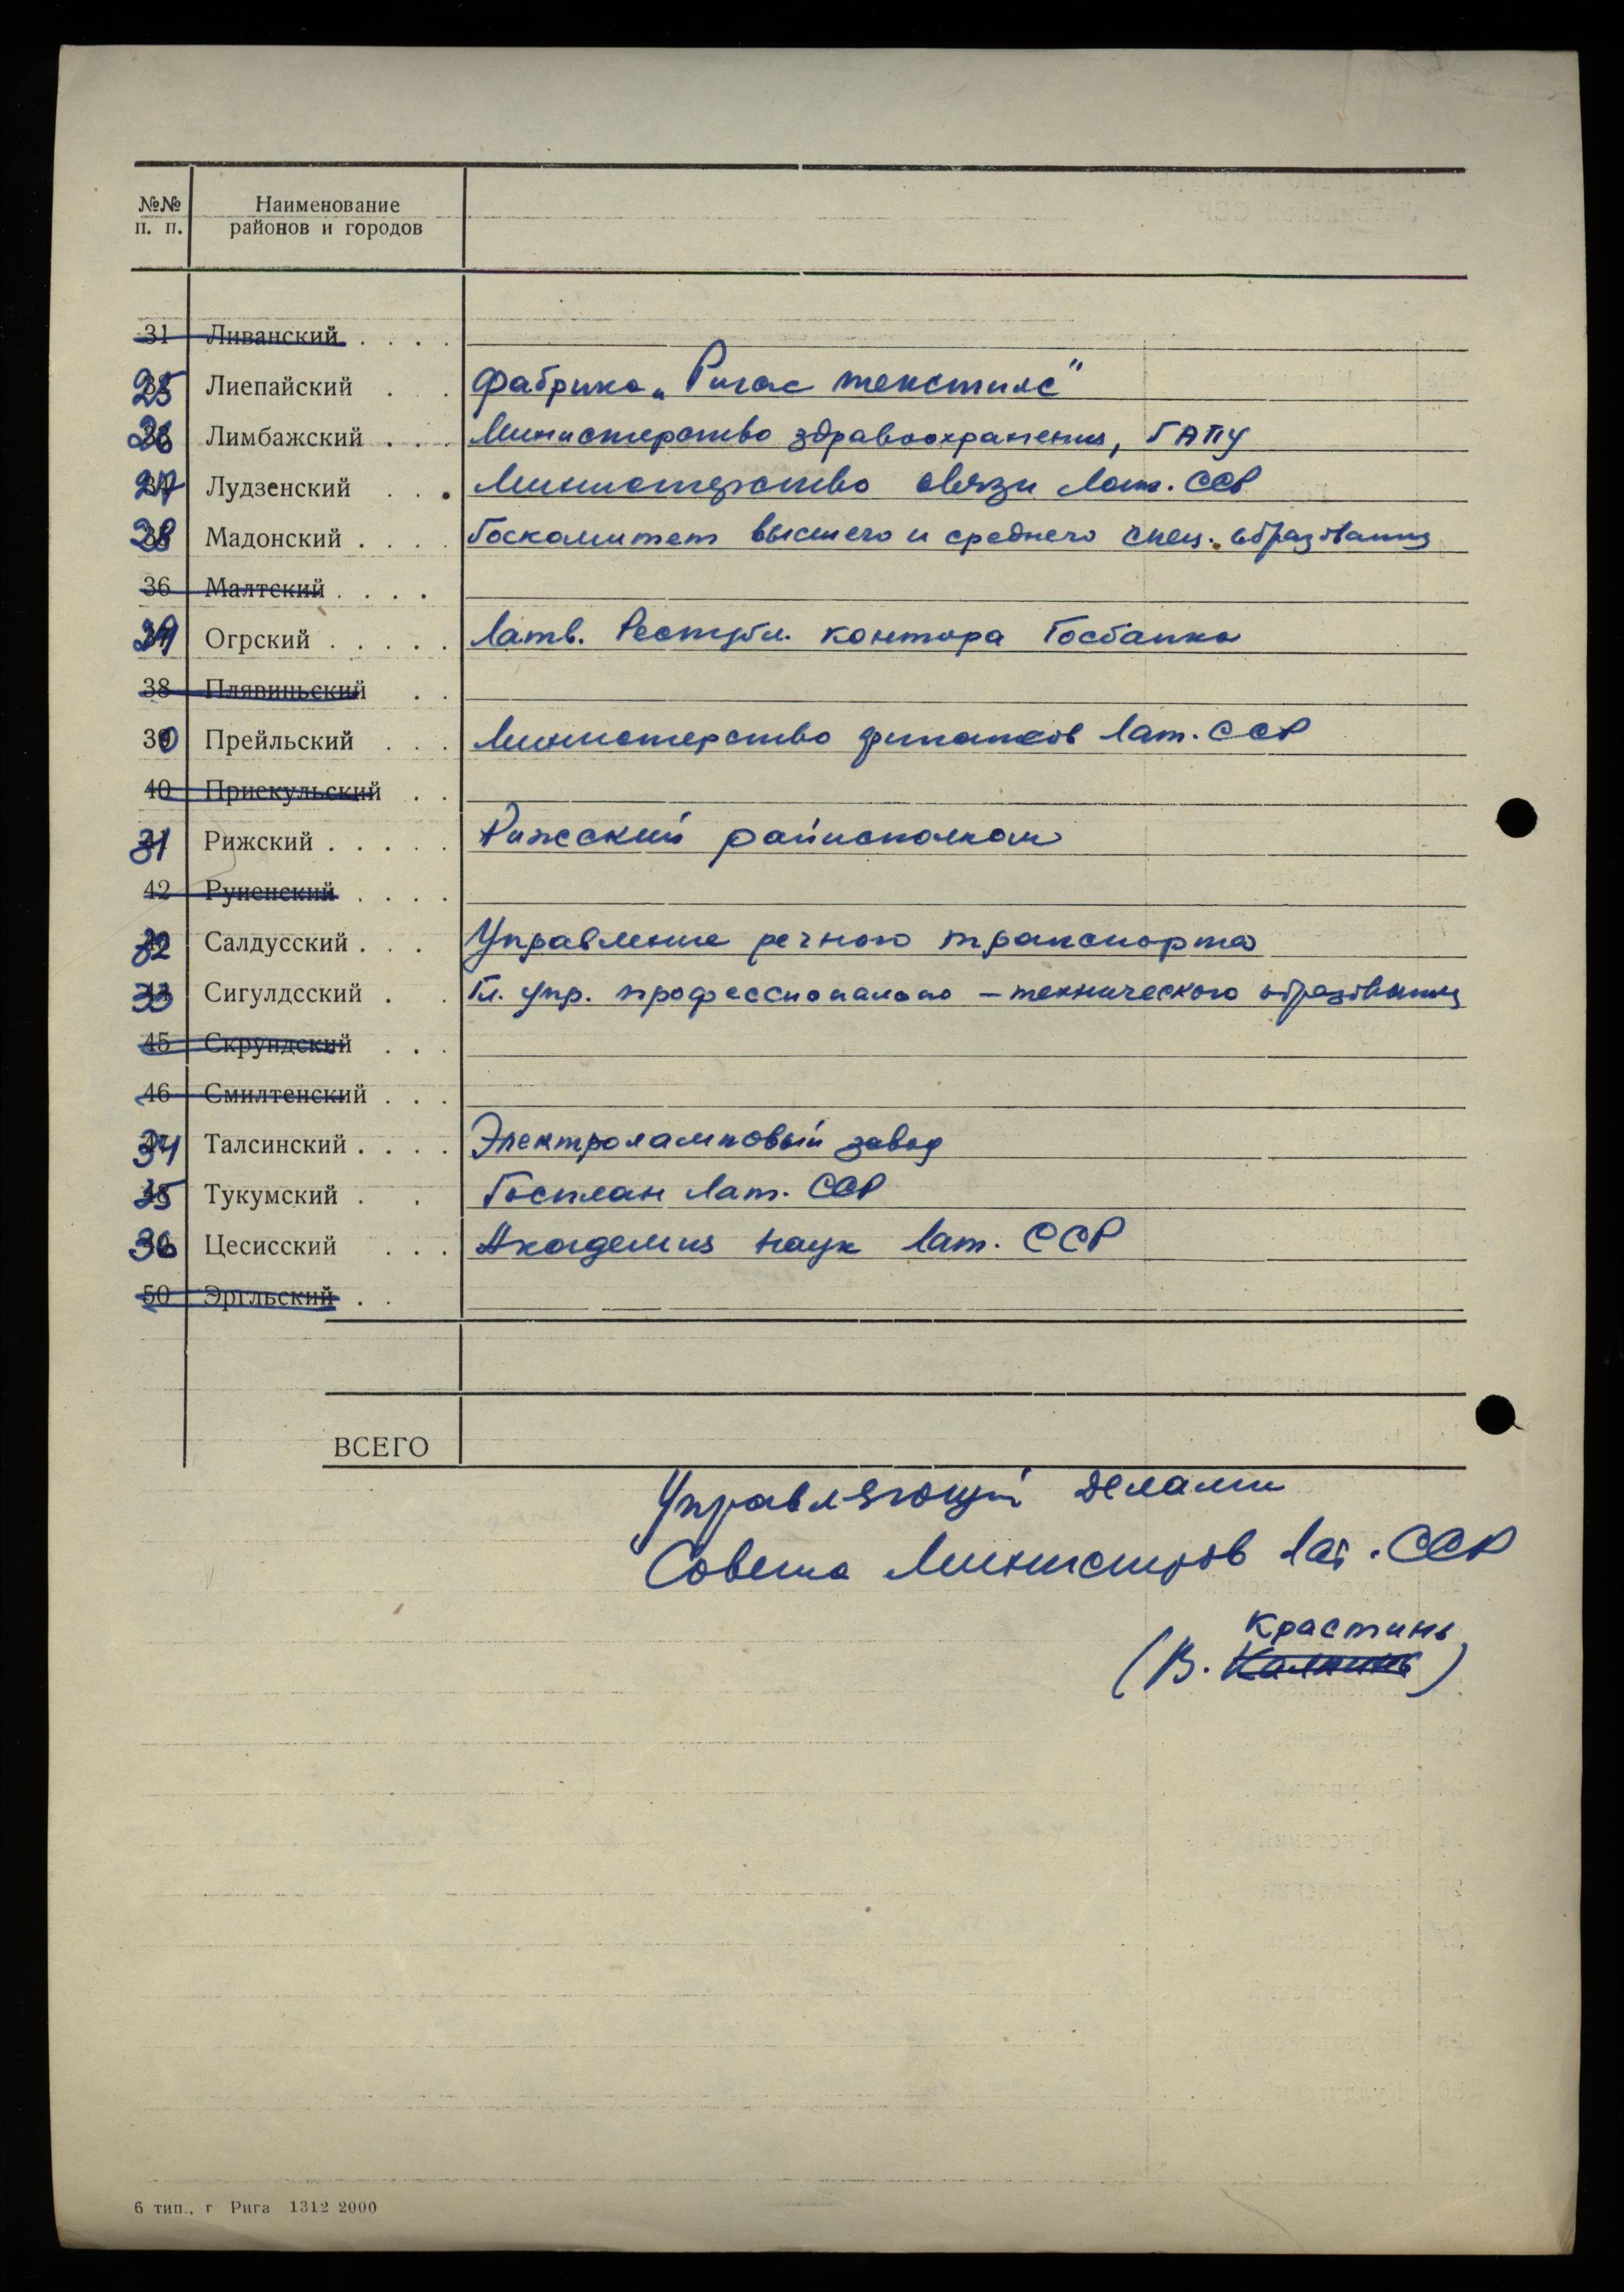 №№ п. п. Наименование районов и городов
31 Ливанский . . . .
25 Лиепайский . . фабрика „Ригас текстилс"
26 Лимбажский . . . Министерство здравоохранения, ГАПУ
27 Лудзенский . . . Министерство связи Лат. ССР
28 Мадонский . . . . Госкомитет высшего и среднего спец. образования
36 Малтский . . . .
29 Огрский . . . . . Латв. Республ. контора Госбанка
38 Плявиньский . .
30 Прейльский . . . Министерство финансов Лат. ССР
40 Приекульский . .
31 Рижский . . . . . Рижский райисполком
42 Руиенский . . . .
32 Салдусский . . . Управление речного транспорта
33 Сигулдсский . . Гл. упр. профессионально-технического образования
45 Скрундский . . .
46 Смилтенский . . .
34 Талсинский . . . . Электроламповый завод
35 Тукумский . . Госплан Лат. ССР
36 Цесисский . . . Академия наук Лат. ССР
50 Эргльский . .
ВСЕГО
Управляющий делами
Совета Министров Лат. ССР
Крастинь
(В. Калнинь)
6 тип., г Рига 1312 2000